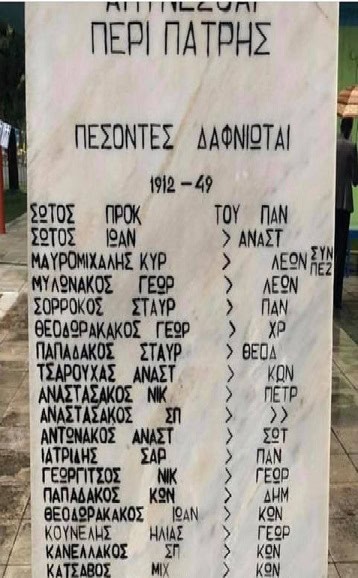 ΑΜΥΝΕΣΘΑΙ
ΠΕΡΙ ΠΑΤΡΗΣ
ΠΕΣΟΝΤΕΣ ΔΑΦΝΙΩΤΑΙ
1912 – 49
ΣΩΤΟΣ ΠΡΟΚ ΤΟΥ ΠΑΝ
ΣΩΤΟΣ ΙΩΑΝ > ΑΝΑΣΤ
ΜΑΥΡΟΜΙΧΑΛΗΣ ΚΥΡ > ΛΕΩΝ ΣΥΝ ΠΕΖ
ΜΥΛΩΝΑΚΟΣ ΓΕΩΡ > ΛΕΩΝ
ΣΟΡΡΟΚΟΣ ΣΤΑΥΡ > ΠΑΝ
ΘΕΟΔΩΡΑΚΑΚΟΣ ΓΕΩΡ > ΧΡ
ΠΑΠΑΔΑΚΟΣ ΣΤΑΥΡ > ΘΕΟΔ
ΤΣΑΡΟΥΧΑΣ ΑΝΑΣΤ > ΚΩΝ
ΑΝΑΣΤΑΣΑΚΟΣ ΝΙΚ > ΠΕΤΡ
ΑΝΑΣΤΑΣΑΚΟΣ ΣΠ > >>
ΑΝΤΩΝΑΚΟΣ ΑΝΑΣΤ > ΣΩΤ
ΙΑΤΡΙΔΗΣ ΣΑΡ > ΠΑΝ
ΓΕΩΡΓΙΤΣΟΣ ΝΙΚ > ΓΕΩΡ
ΠΑΠΑΔΑΚΟΣ ΚΩΝ > ΔΗΜ
ΘΕΟΔΩΡΑΚΑΚΟΣ ΙΩΑΝ > ΚΩΝ
ΚΟΥΝΕΛΗΣ ΗΛΙΑΣ > ΓΕΩΡ
ΚΑΝΕΛΛΑΚΟΣ ΣΠ > ΚΩΝ
ΚΑΤΣΑΒΟΣ ΜΙΧ > ΚΩΝ